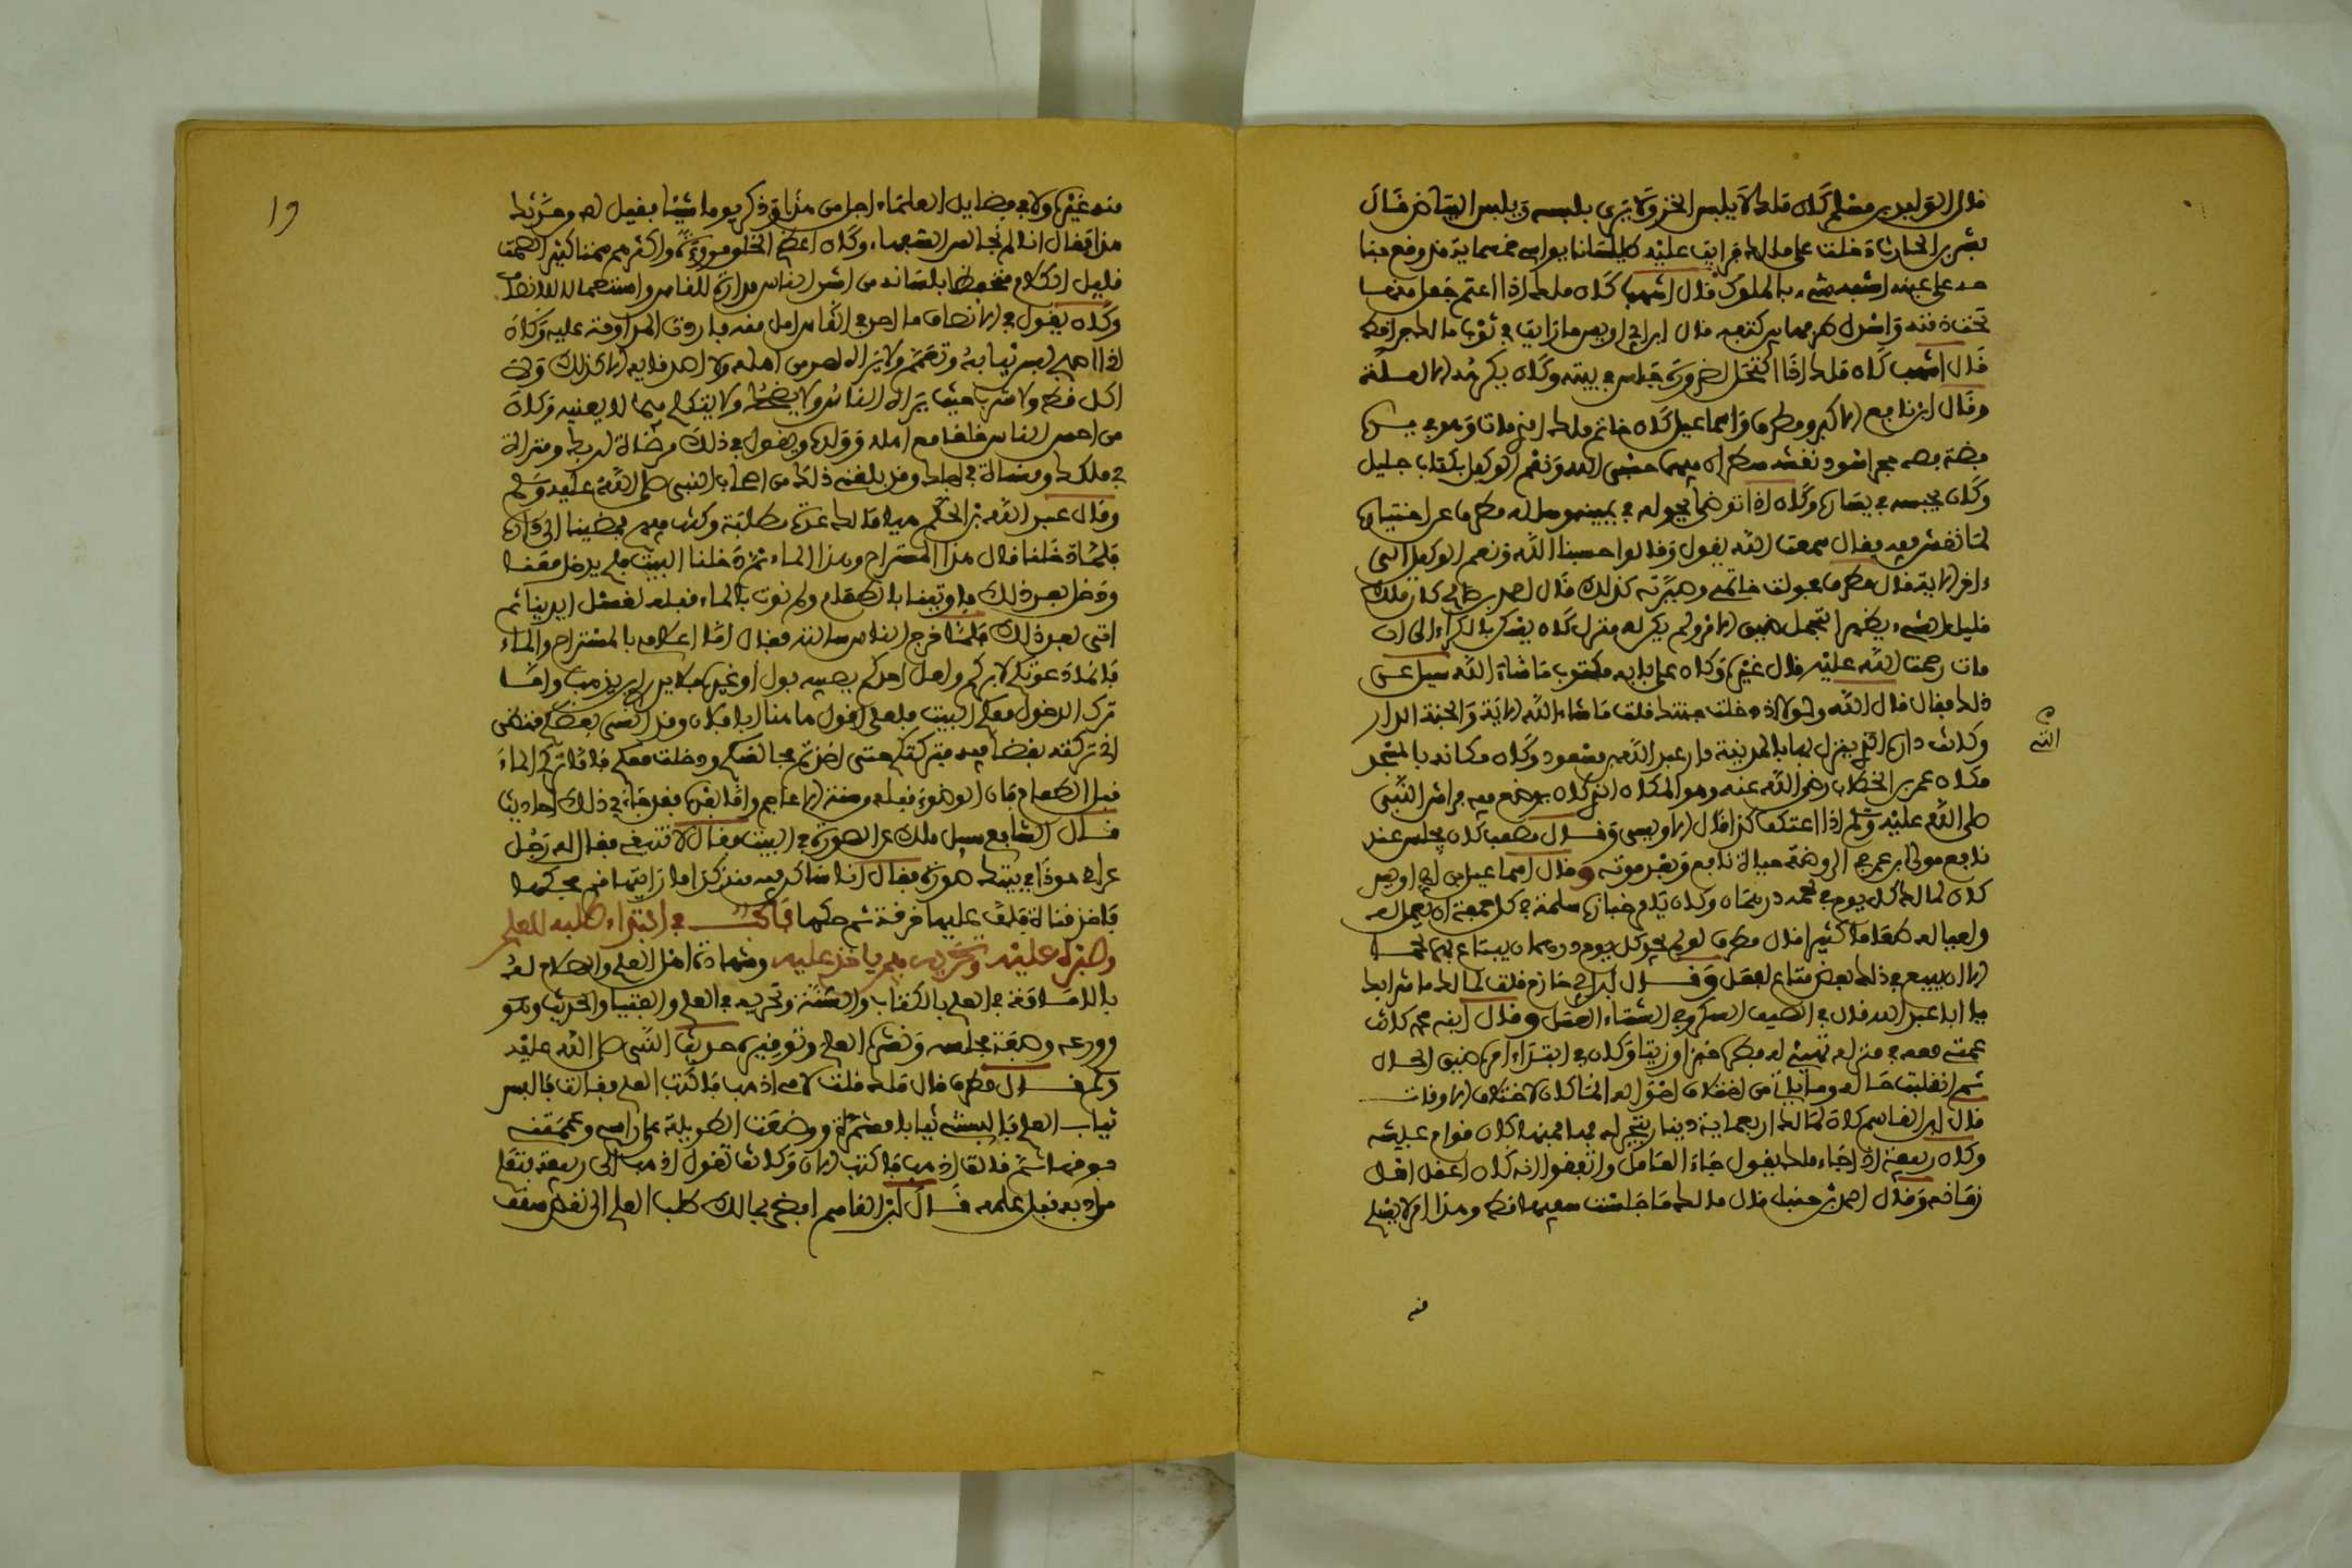 قال الوليد بن مسلم كان ملك لا يلبس الخز ولا يرى بلبسه ويلبس البياض قال
بشر بن الحارث دخلت على مالك فرأيت عليه طيلسانا يواسي خمسماية قد وقع جنا
حه على عينيه اشبه شيء بالملوك قال اشهب كان ملك اذا اعتم جعل منها
تحت ذقنه واسدل طرفها بين كتفيه قال ابن ابي اويس ما رأيت في ثوب مالك حبرا قط
قال اشهب كان ملك اذا اكتحل لضرورة جلس في بيته وكان يكرهه الا لعلة
وقال ابن نافع الاكبر ومطرف واسماعيل كان خاتم ملك الذي مات وهو في يده
فضة فصه حجر اسود نقشه سطران فيهما حسبي الله ونعم الوكيل بكتاب جليل
وكان يحبسه في يساره وكان اذا توضأ يحوله في يمينه وسأله مطرف عن اختياره
لما نقش فيه فقال سمعت الله يقول وقالوا حسبنا الله ونعم الوكيل الى
ءاخر الاية قال مطرف فحولت خاتمي وصيرته كذلك قال احمد بن صالح كان ملك
قليل الشيء يظهر التجمل ضيق الامر ولم يكن له منزل كان يسكن بالكراء الى ان
مات رحمت الله عليه قال غيره وكان على بابه مكتوب ما شاء الله سيل عن
ذلك فقال قال الله ولولا اذ دخلت جنتك قلت ما شاء الله الاية والجنة الدار
وكانت داره التي ينزل بها بالمدينة دار عبد الله بن مسعود وكان مكانه بالمسجد
مكان عمر بن الخطاب رضي الله عنه وهو المكان الذي كان يوضع فيه فراش النبي
صلى الله عليه وسلم اذا اعتكف كذا قال الاويسي وقال مصعب كان يجلس عند
نافع مولى ابن عمر في الروضة حياة نافع وبعد موته وقال اسماعيل بن ابي اويس
كان لمالك كل يوم في لحمه درهمان وكان يامر خبازه سلمة في كل جمعة ان يعمل له
ولعياله طعاما كثيرا قال مطرف لو لم يجد كل يوم درهمان يبتاع بهما لحما
الا ان يبيع في ذلك بعض متاعه لفعل وقال ابن ابي حازم قلت لمالك ما شرابك
يا ابا عبد الله قال في الصيف السكر وفي الشتاء العسل وقال ابنه محمد كانت
عمتي معه في منزله تهيئ له فطره خبزا وزيتا وكان في ابتداء امره ضيق الحال
ثم انقلبت حاله
قال ابن القاسم كان لمالك اربعماية دينار يتجر له بها فمنها كان قوام عيشه
وكان ربيعة اذا جاء ملك يقول جاء العاقل واتفقوا انه كان اعقل اهل
زمانه وقال احمد بن حنبل قال مالك ما جالست سفيها قط وهذا امر لا يسلم
الله
منه
١٩
منه غيره ولا في فضايل العلماء اجل من هذا وذكر يوما شيئا فقيل له من حدثك
هذا فقال انا لم نجالس السفهاء وكان اعظم الخلق مروءة واكثرهم صمتا كثير الصمت
قليل الكلام متحفظا بلسانه من اشد الناس مداراة للناس واستعمالا للانصاف
وكان يقول في الانصاف ما احد في الناس اقل منه فاردت المداومة عليه وكان
اذا اصبح لبس ثيابه وتعمم ولا يراه احد من اهله ولا اصدقايه الا كذلك وما
اكل قط ولا شرب حيث يراه الناس ولا يضحك ولا يتكلم فيما لا يعنيه وكان
من احسن الناس خلقا مع اهله وولده ويقول في ذلك مرضاة لربك ومثراة
في مالك ومنسأة في اجلك وقد بلغني ذلك من اصحاب النبي صلى الله عليه وسلم
وقال عبد الله بن الحكم هيا مالك دعوة لطلبة وكنت فيهم فمضينا الى داره
فلما دخلنا قال هذا المستراح وهذا الماء ثم دخلنا البيت فلم يدخل معنا
ودخل بعد ذلك فاوتينا بالطعام ولم نوت بالماء قبله لغسل ايدينا ثم
اتى بعد ذلك فلما خرج الناس سالته فقال اما اعلامي بالمستراح والماء
فانما دعوتكم لابركم ولعل احدكم يصيبه بول او غيره فلا يدري اين يذهب واما
ترك الدخول معكم البيت فلعلي اقول هاهنا ابا فلان وقد انسى بعضكم فيظن
اني تركته بغضا فيه فتركتكم حتى اخذتم مجالسكم ودخلت معكم فاما تركي الماء
قبل الطعام فان الوضوء قبله من سنة الاعاجم واما بعده فقد جاء في ذلك احاديث
قال الشافعي سيل ملك عن الصورة في البيت فقال لا تنبغي فقال له رجل
عراقي هو ذا في بيتك صورة فقال انا ساكن فيه منذ كذا ما رايتها قم فحكها
فاخذ قناة فلف عليها خرقة ثم حكها باب في ابتداء طلبه للعلم
وصبره عليه وتحريه فيمن ياخذ عليه وشهادة اهل العلم والصلاح له
بالامامة في العلم بالكتاب والسنة وتحريه في العلم والفتيا والحديث
وورعه وصفة مجلسه ونشره العلم وتوقيره حديث النبي صلى الله عليه
وسلم قال مطرف قال ملك قلت لامي اذهب فاكتب العلم فقالت فالبس
ثياب العلم فالبستني ثيابا مشمرة ووضعت الطويلة على راسي وعممتني
فوقها ثم قالت اذهب فاكتب الان وكانت تقول اذهب الى ربيعة فتعلم
من ادبه قبل علمه قال ابن القاسم افضى بمالك طلب العلم الى نقض سقف